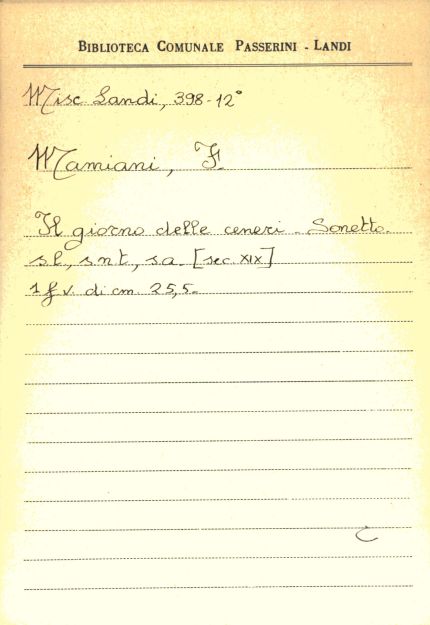 BIBLIOTECA COMUNALE PASSERINI - LANDI
Misc. Landi, 398-12°
Mamiani, F.
Il giorno delle ceneri - Sonetto.
s.l., s.n.t., s.a. [sec. XIX]
1 f. v. di cm. 25,5-
C